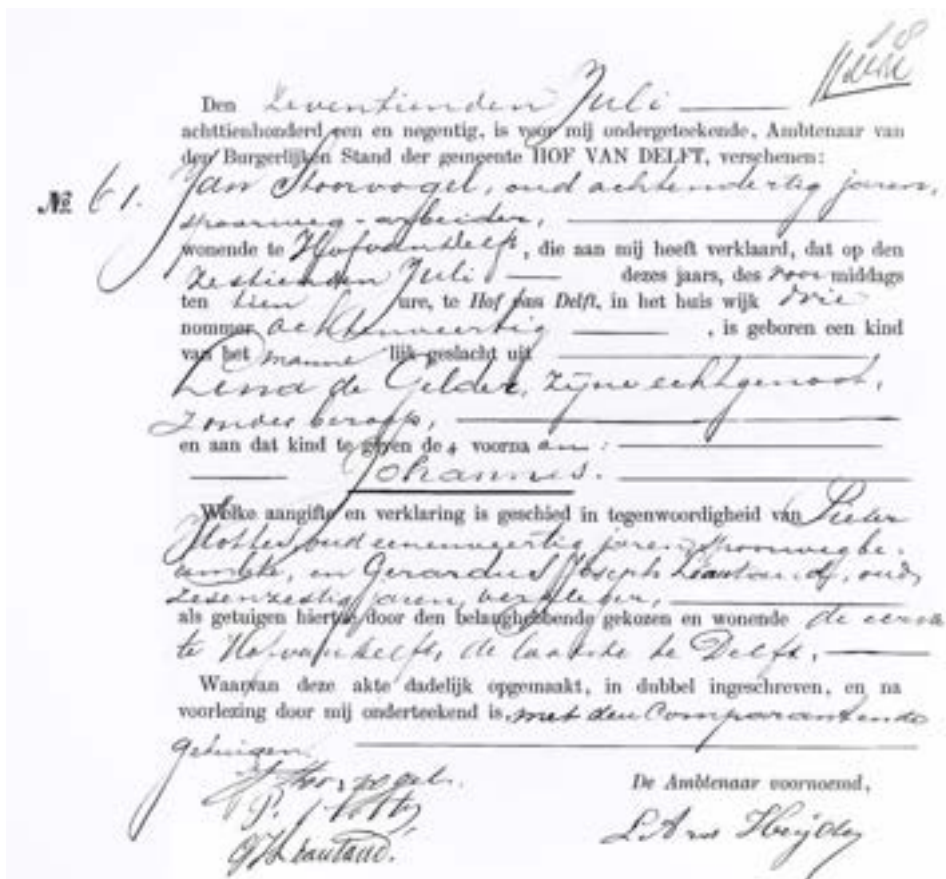 18
Den Zeventienden Juli
achttienhonderd een en negentig, is voor mij ondergeteekende, Ambtenaar van
den Burgerlijken Stand der gemeente HOF VAN DELFT, verschenen:
№ 61. Jan Stoorvogel, oud achtendertig jaren,
spoorweg-arbeider,
wonende te Hofvandelft, die aan mij heeft verklaard, dat op den
zestienden Juli dezes jaars, des voormiddags
ten tien ure, te Hof van Delft, in het huis wijk drie
nommer achtenveertig, is geboren een kind
van het mannelijk geslacht uit
Lena de Gelder, zijne echtgenoot,
zonder beroep,
en aan dat kind te geven de voornaam:
Johannes.
Welke aangifte en verklaring is geschied in tegenwoordigheid van Pieter
oud eenenveertig jaren, spoorwegbe-
ambte, en Gerardus Joseph Liautand, oud
zesenzestig jaren, verpleger,
als getuigen hiertoe door den belanghebbende gekozen en wonende de eerste
te Hofvandelft, de laatste te Delft,
Waarvan deze akte dadelijk opgemaakt, in dubbel ingeschreven, en na
voorlezing door mij onderteekend is, met den Comparant en de
getuigen.
J Stoorvogel.
De Ambtenaar voornoemd,
P.